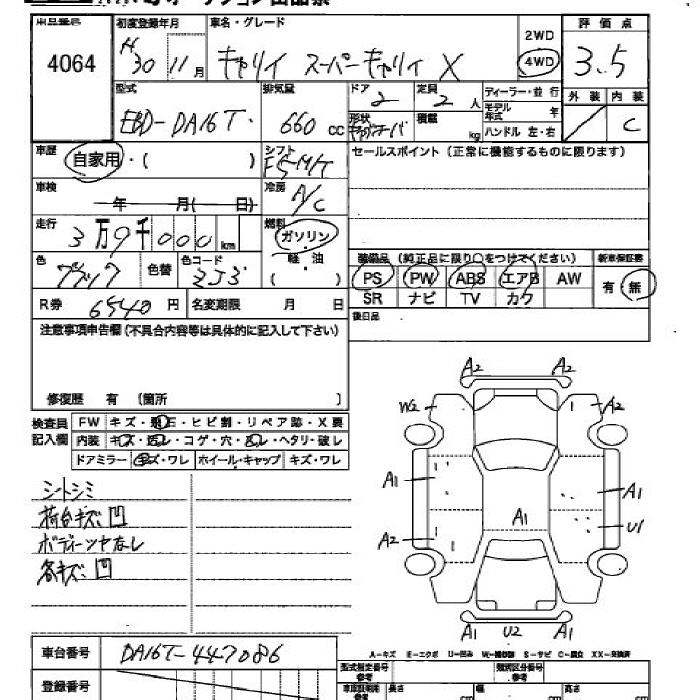 4064
初度登録年月
車名・グレード
H 30 11月
キャリイ スーパーキャリイ X
2WD
4WD
評価点
3.5
型式
排気量
EBD-DA16T
660 cc
ドア
2
定員
2 人
形状
積載
kg
ディーラー・並 行
モデル年式
年
ハンドル 左・右
外装
内装
C
車歴
自家用・( )
シフト
F5M/T
セールスポイント(正常に機能するものに限ります)
車検
年 月( 日)
冷房
A/C
走行
3万9千000km
燃料
ガソリン
軽・油
( )
色
色替
色コード
ZJ3
装備品(純正品に限り○をつけてください)
新車保証書
PS PW ABS エアB AW
SR ナビ TV カワ
有・無
R券
6540円
名変期限 月 日
後日品
注意事項申告欄(不具合内容等は具体的に記入して下さい)
修復歴 有 (箇所 )
検査員
記入欄
FW キズ・ ・ヒビ割・リペア跡・X要
内装 キズ・ ・コゲ・穴・ ・ヘタリ・破レ
ドアミラー キズ・ワレ ホイール・キャップ キズ・ワレ
シートシミ
荷台キズ凹
ボディーツヤなし
各キズ凹
A2 A2
W2 A2
A1 A1
A1
A2 U1
A1 U2 A1
車台番号
DA16T-447086
登録番号
A-キズ E-エクボ U-凹み
型式指定番号
類別区分番号
長さ
幅
高さ
cm cm cm